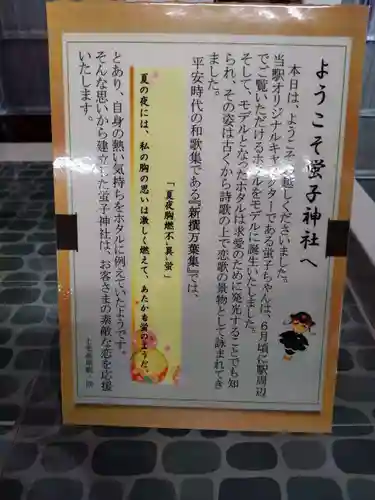 ようこそ蛍子神社へ
本日は、ようこそお越しくださいました。
当駅オリジナルキャラクターである蛍子ちゃんは、6月頃に駅周辺
でご覧いただけるホタルをモデルに誕生いたしました。
そして、モデルとなったホタルは求愛のために発光することでも知
られ、その姿は古くから詩歌の上で恋歌の景物として詠まれてき
ました。
平安時代の和歌集である『新撰万葉集』では、
「夏夜胸燃不異蛍」
夏の夜には、私の胸の思いは激しく燃えて、あたかも蛍のようだ。
とあり、自身の熱い気持ちをホタルに例えていたようです。
そんな思いから建立した蛍子神社は、お客さまの素敵な恋を応援
いたします。